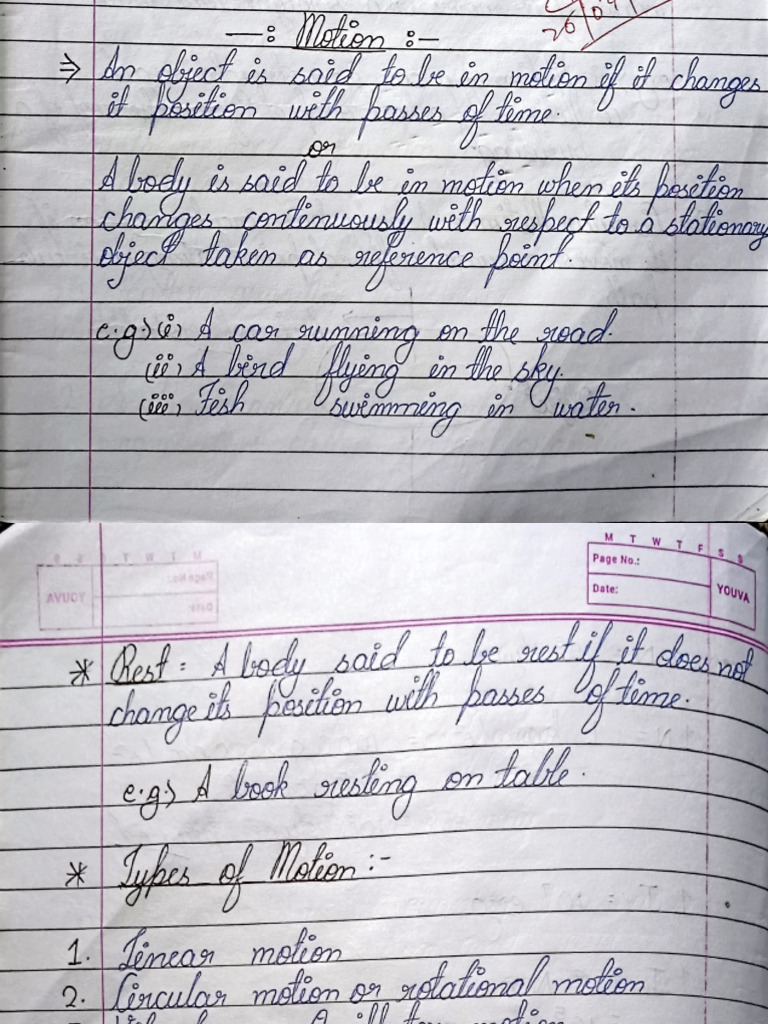 26/04/
—: Motion :-
⇒ An object is said to be in motion if it changes
it position with passes of time.
or
A body is said to be in motion when its position
changes continuously with respect to a stationary
object taken as reference point.
e.g.) (i) A car running on the road.
(ii) A bird flying in the sky.
(iii) Fish swimming in water.
M T W T F S S
Page No.:
Date:
YOUVA
* Rest = A body said to be rest if it does not
change its position with passes of time.
e.g.) A book resting on table.
* Types of Motion :-
1. Linear motion
2. Circular motion or rotational motion
motion